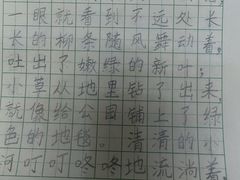 一眼就看到不远处长
长的柳条随风舞动着。
吐出了嫩绿的新叶；
小草从地里钻了出来，
就像给公园铺上了绿
色的地毯。清清的小
河叮叮咚咚地流淌着。